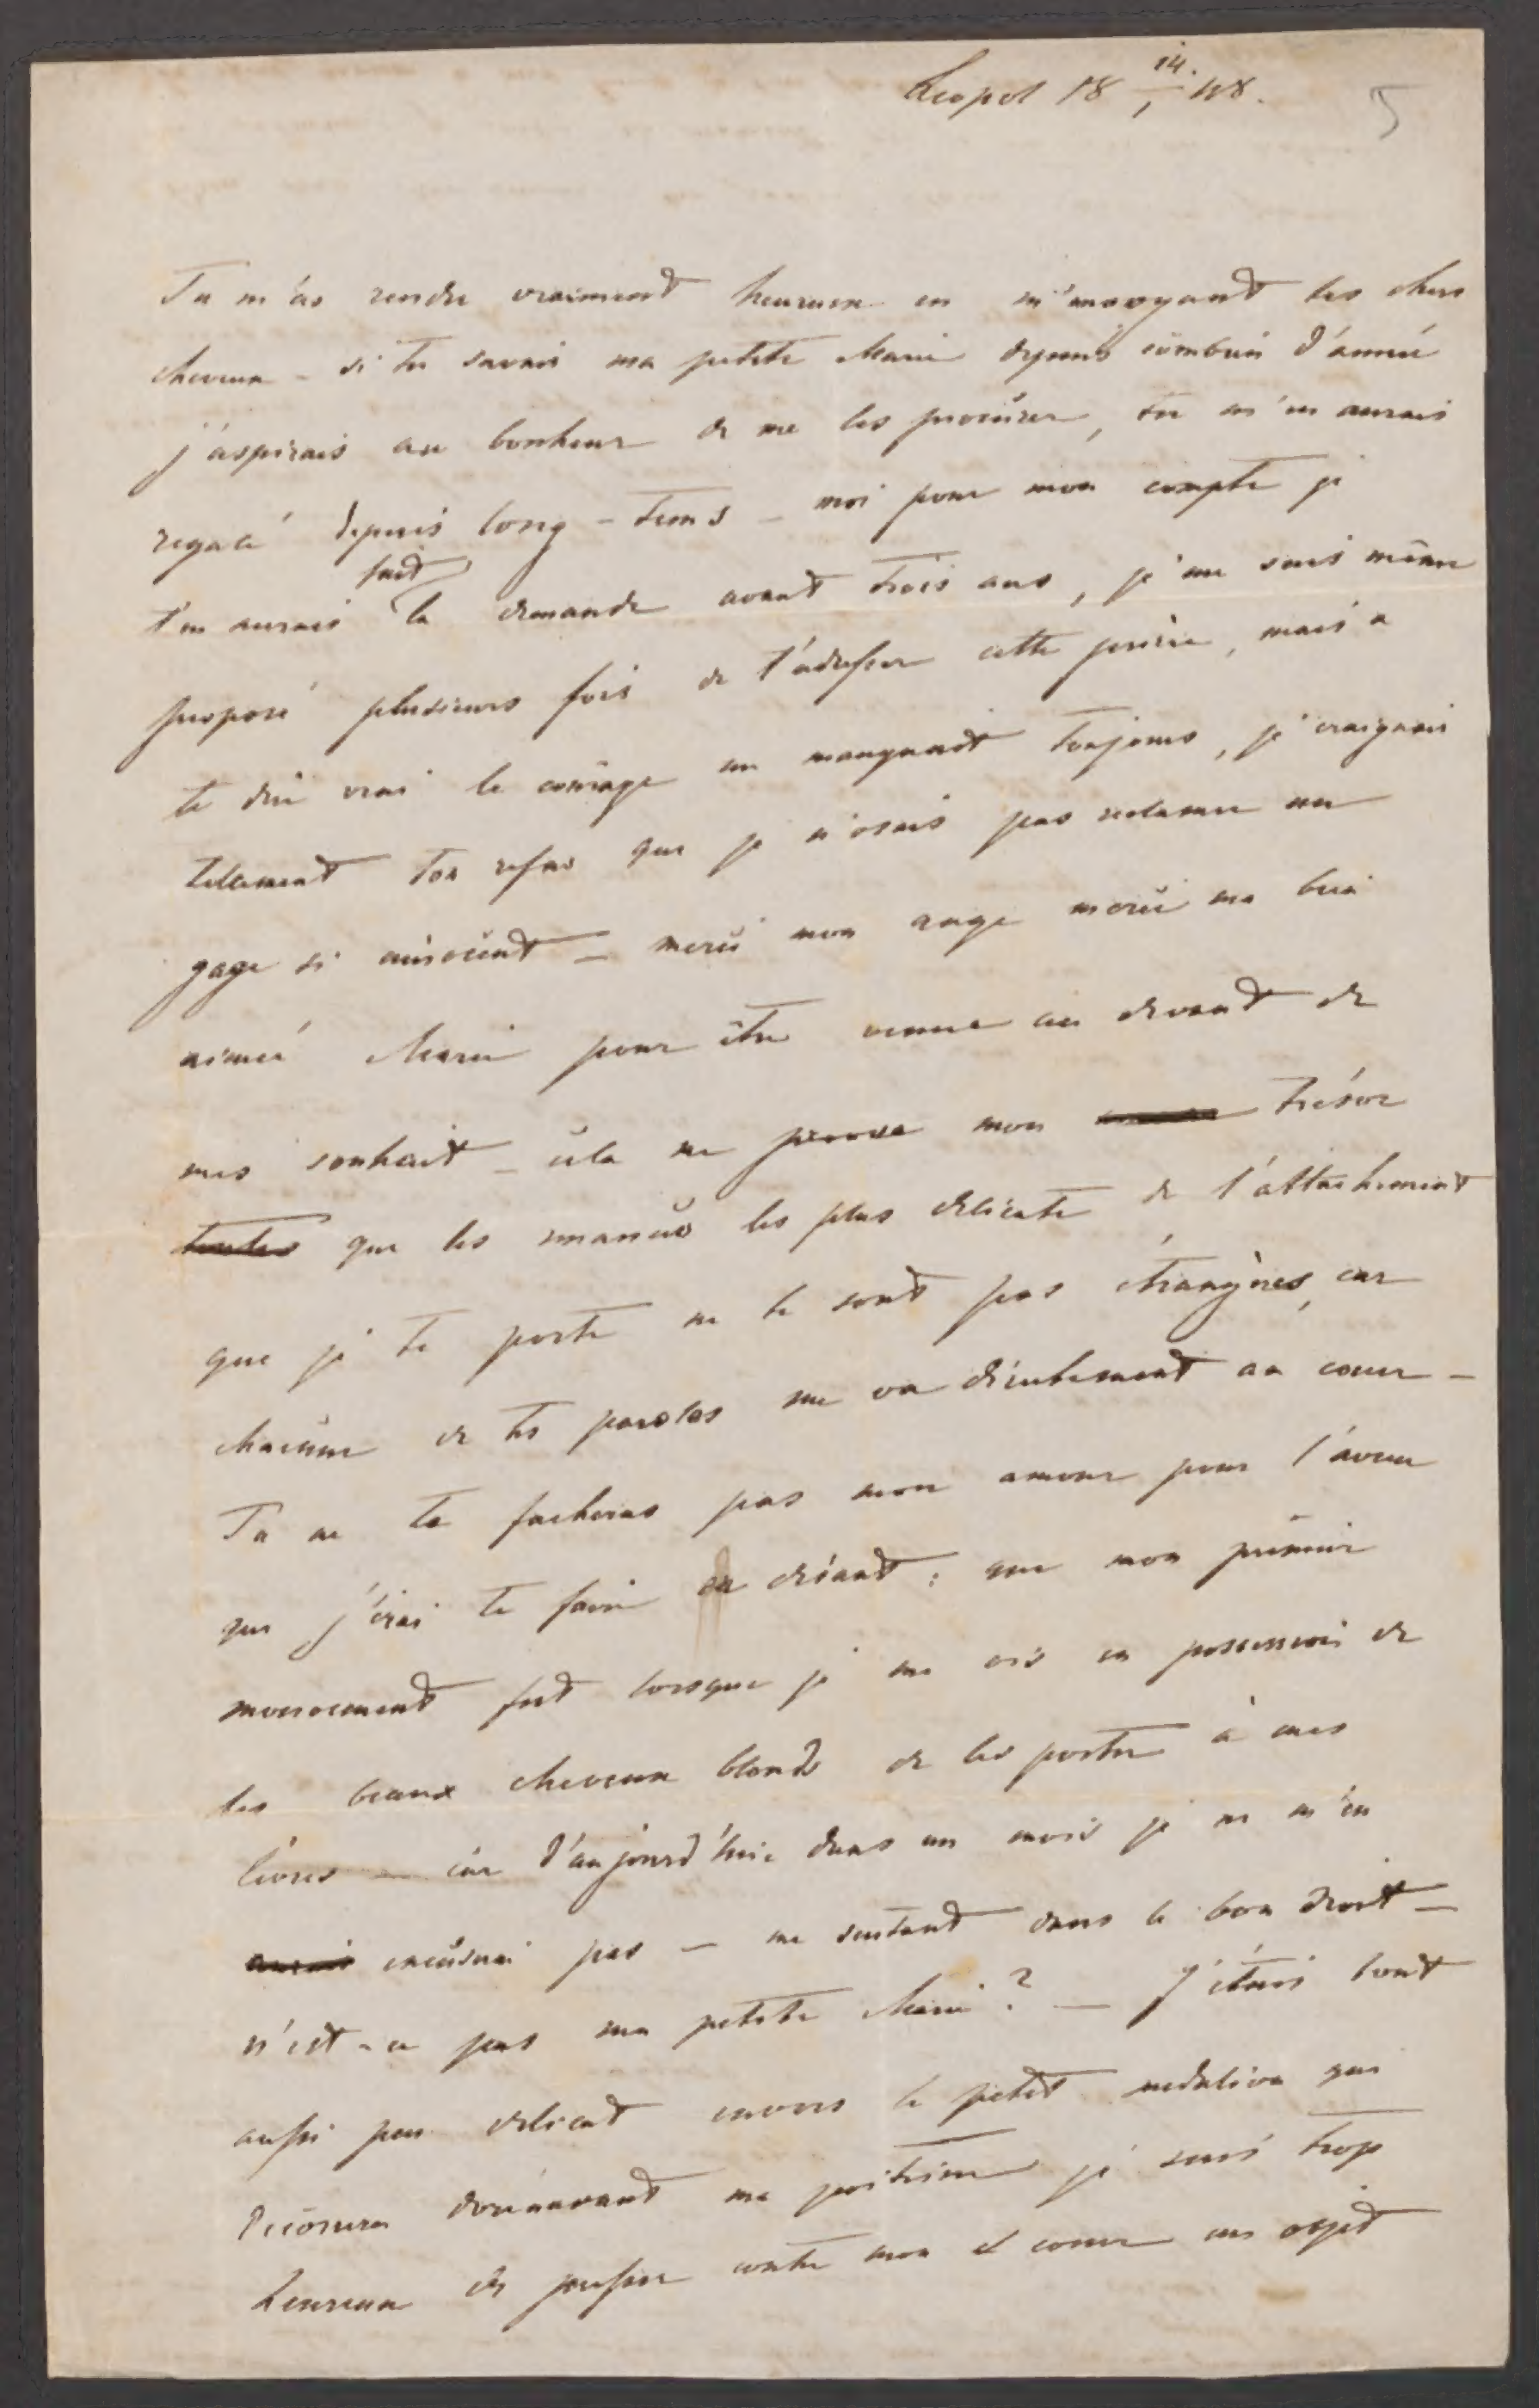 Leopol 18 14./1 48.
5
Tu m'as rendu vraiment heureux en m'envoyant tes chers
cheveux – si tu savais ma petite Marie depuis combien d'année
j'aspirais au bonheur de me les procurer, tu m'en aurais
regalé depuis long-tems – moi pour mon compte je
fait
t'en aurais la demande avant trois ans, je me suis même
proposé plusieurs fois de t'adresser cette prière, mais a
te dire vrai le courage me manquait toujours, je craignais
tellement ton refus que je n'osais pas reclamer un
gage si innocent – merci mon ange merci ma bien
aimée Marie pour être venue au devant de
mes souhait – cela me prouve mon trésor
toutes que les nuances les plus delicate de l'attachement
que je te porte ne te sont pas étrangères, car
chacune de tes paroles me va directement au coeur –
Tu ne te facheras pas mon amour pour l'aveu
que j'irai te faire en disant: que mon premier
mouvement fut lorsque je me vis en possession de
tes beaux cheveux blonds de les porter à mes
lèvres – car d'aujourd'hui dans un mois je ne m'en
excuserai pas – me sentant dans le bon droit –
n'est-ce pas ma petite Marie? – J'étais tout
aussi peu delicat envers le petit medalion qui
decorera dorénavant ma poitrine je suis trop
heureux de presser contre mon coeur un objet